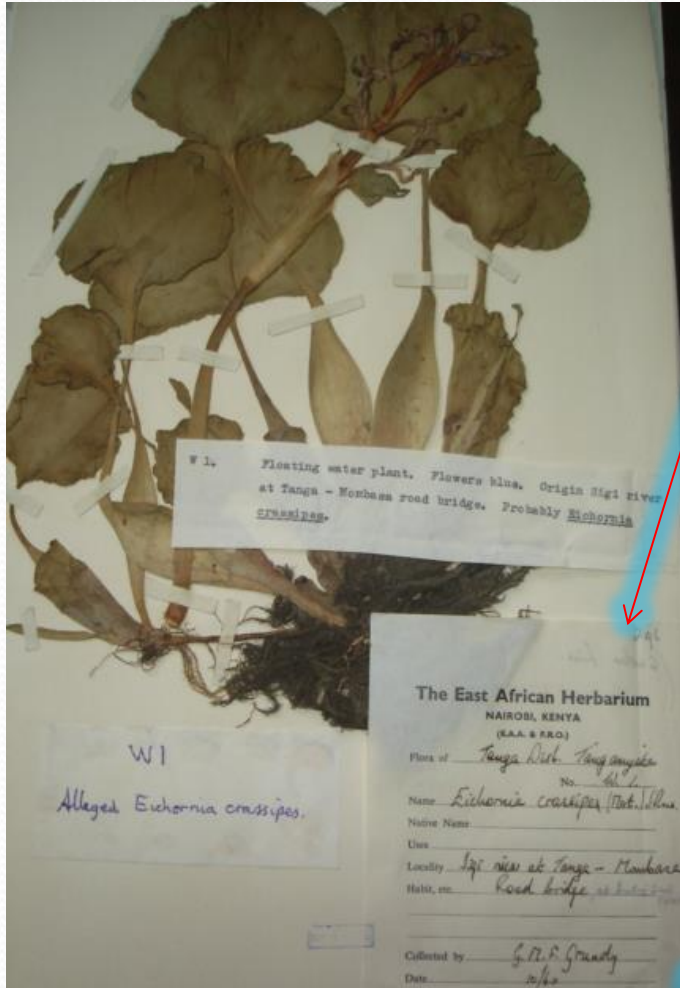 W 1. Floating water plant. Flowers blue. Origin Sigi river
at Tanga - Mombasa road bridge. Probably Eichornia
crassipes.
W1
Alleged Eichornia crassipes.
The East African Herbarium
NAIROBI, KENYA
(E.A.A. & F.R.O.)
Flora of Tanga Dist. Tanganyika
No. W. 1.
Name Eichornia crassipes (Mart.) Solms
Native Name
Uses
Locality Sigi river at Tanga - Mombasa
Habit, etc. Road bridge
Collected by G.M.F. Grundy
Date 10/60